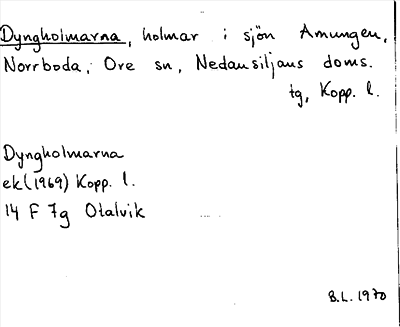 Dyngholmarna, holmar i sjön Amungen,
Norrboda, Ore sn, Nedansiljans doms.
tg, Kopp. l.
Dyngholmarna
ek (1969) Kopp. l.
14 F 7g Otalvik
B.L. 1970